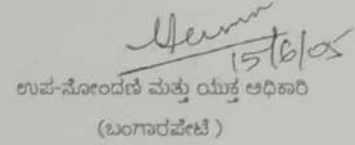 15/6/05
ಉಪ-ನೋಂದಣಿ ಮತ್ತು ಯುಕ್ತ ಅಧಿಕಾರಿ
(ಬಂಗಾರಪೇಟೆ)